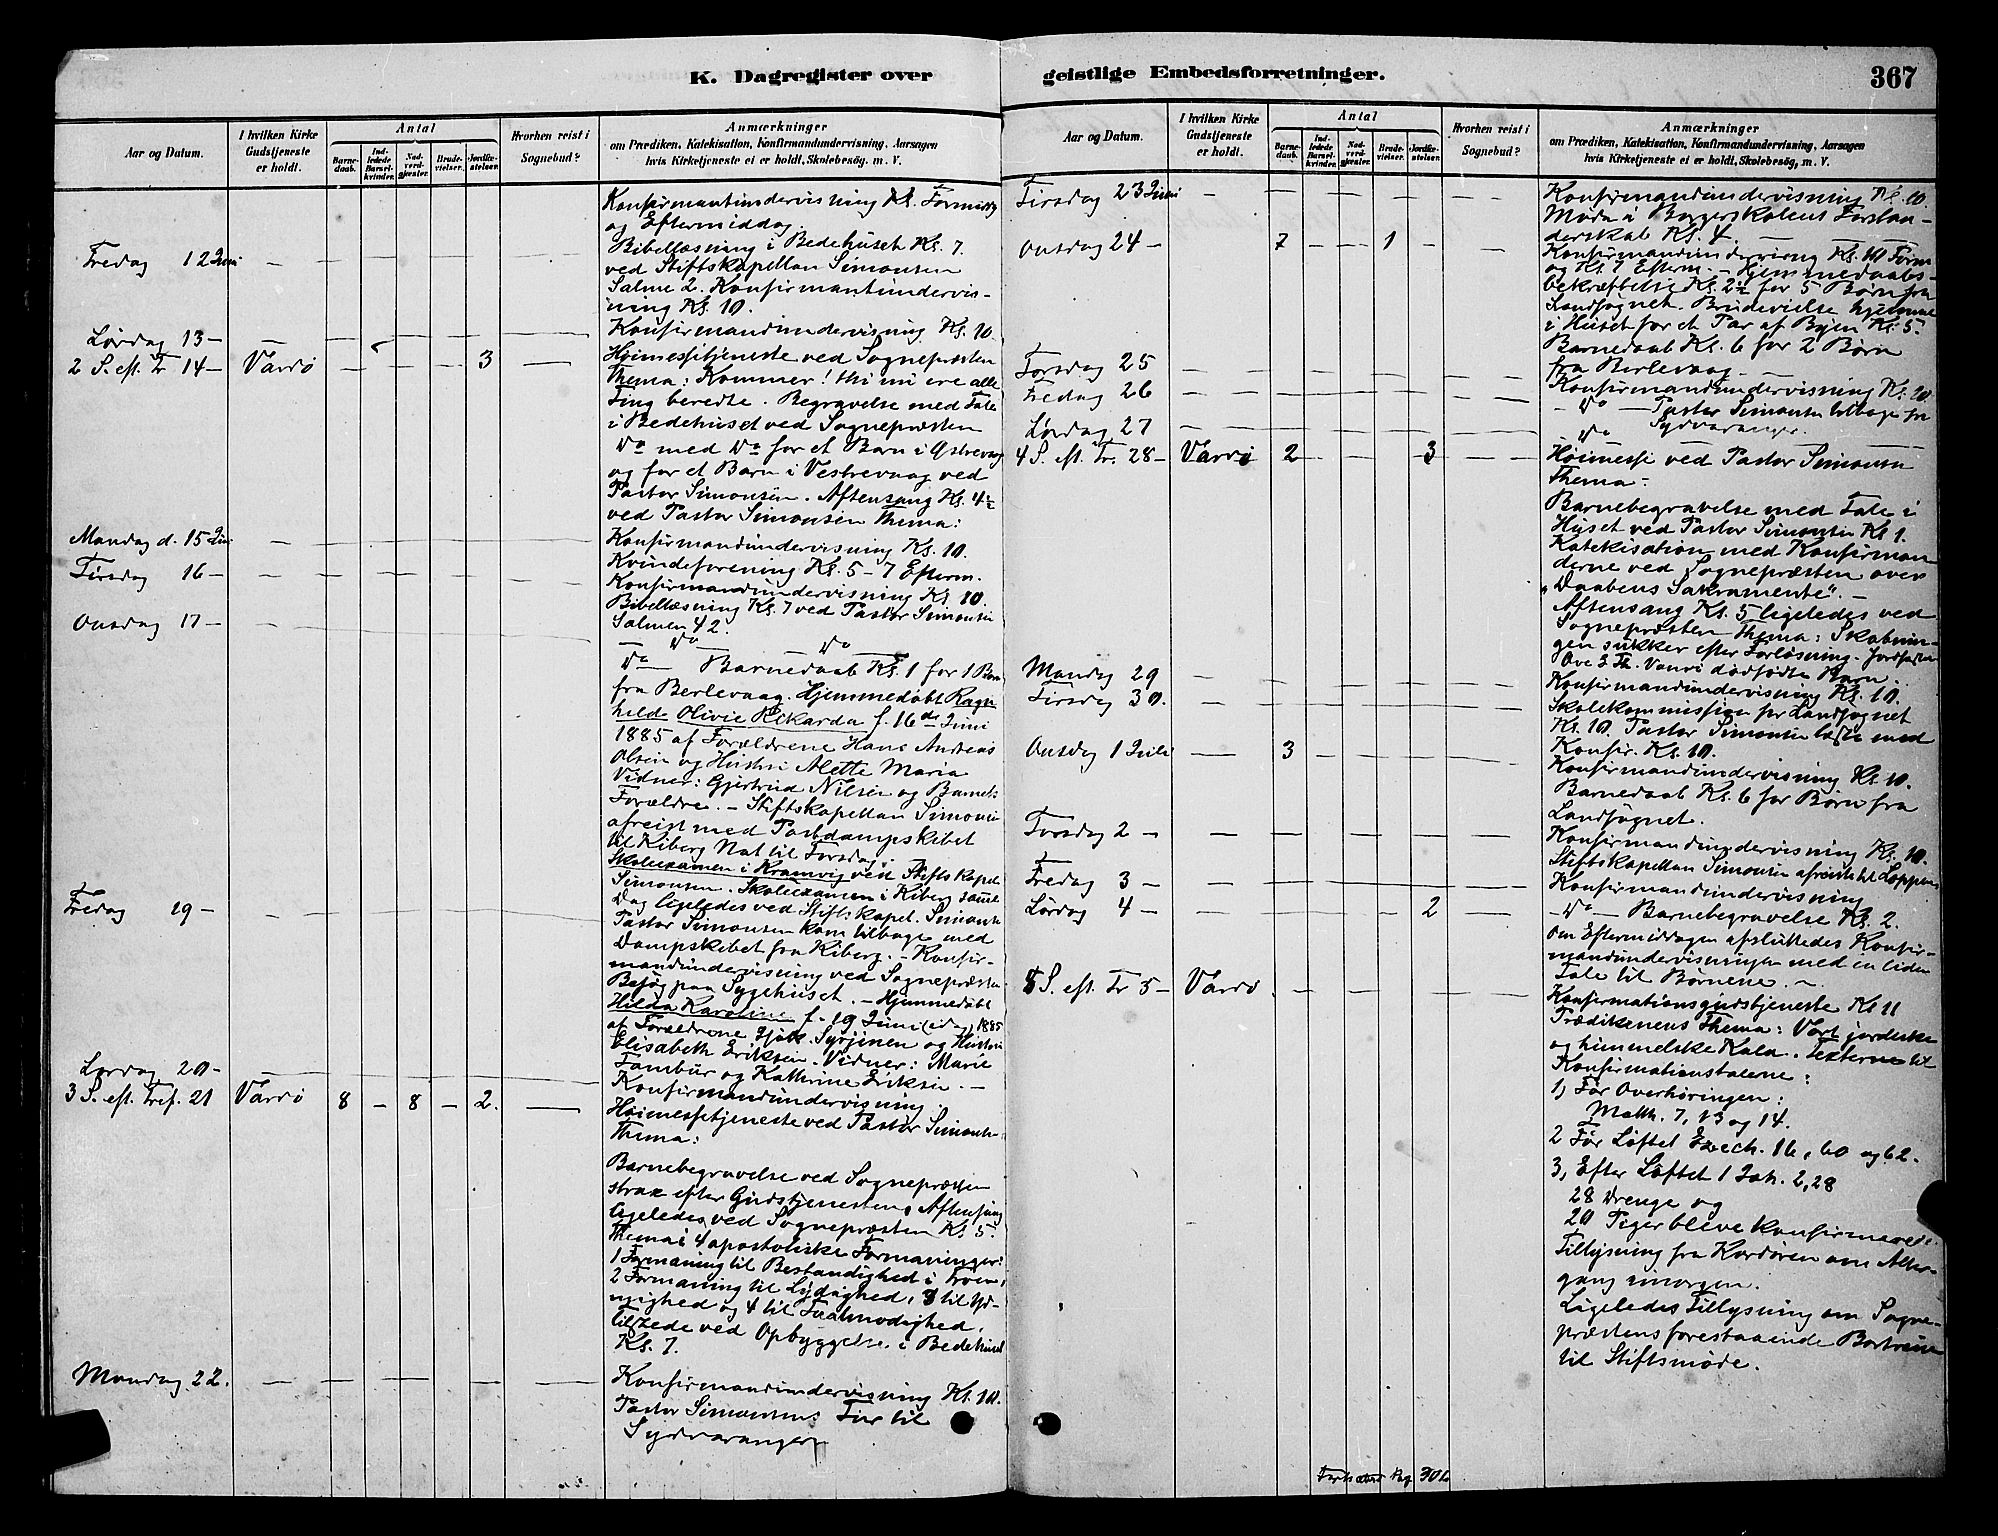 K. Dagregister over
Aar og Datum.
I hvilken Kirke
Gudstjeneste
er holdt.
Antal
Barne-
daab.
Ind-
ledede
Barsel-
kvinder.
Nad-
verd-
gjester.
Brude-
vielser.
Jordfæ-
stelser.
Hvorhen reist i
Sognebud?
Anmærkninger
om Prædiken, Katekisation, Konfirmandundervisning, Aarsagen
hvis Kirketjeneste ei er holdt, Skolebesög. m. V.
Konfirmantundervisning Kl. Formidg
og Eftermiddag.
Bibellæsning i Bedehuset Kl. 7.
Fredag 12 Juni — — — — — — —
ved Stiftskapellan Simonsen
Salme 2. Konfirmantundervis-
ning Kl. 10.
Lørdag 13 — — — — — — — —
Konfirmandundervisning Kl. 10
2 S. eft. Tr 14 — Vardø — — — — 3 —
Høimessetjeneste ved Sognepræsten
Thema: Kommer! thi nu ere alle
Ting beredte. Begravelse med Tale
i Bedehuset ved Sognepræsten
Do med Do for et Barn i Østrevaag
og for et Barn i Vestrevaag ved
Pastor Simonsen. Aftensang Kl. 4½
ved Pastor Simonsen Thema:
Mandag d. 15 Juni — — — — — — —
Konfirmandundervisning Kl. 10.
Kvindeforening Kl. 5–7 Efterm.
Tirsdag 16 — — — — — — — —
Konfirmandundervisning Kl 10.
Bibellæsning Kl. 7 ved Pastor Simonsen
Onsdag 17 — — — — — — — —
Salmen 42.
— Do — Do —
— Do — Barnedaab Kl. 1 for 1 Barn
fra Berlevaag. Hjemmedøbt Ragn
hild Olivie Rikarda f. 16de Juni
1885 af Forældrene Hans Andreas
Olsen og Hustru Mette Maria
Vidner: Gjertrud Nilsen og Barnets
Forældre. — Stiftskapellan Simonsen
afreist med Postdampskibet
til Kiberg Nat til Torsdag.
Skoleexamen i Kramvig ved Stiftskapel.
Simonsen. Skoleexamen i Kiberg samme
Fredag 19 — — — — — — — —
Dag ligeledes ved Stiftskapel. Simonsen
Pastor Simonsen kom tilbage med
Dampskibet fra Kiberg. — Konfir-
mandundervisning ved Sognepræsten
Besøg paa Sygehuset. — Hjemmedøbt
Hilda Karoline f. 19 Juni (idag) 1885
af Forældrene og Hustru
Elisabeth Eriksen. Vidner: Marie
Lørdag 20 — — — — — — — —
Tambur og Kathrine Eriksen. —
Konfirmandundervisning.
3 S. eft. Tref. 21 Vardø 8 — 8 — 2. —
Høimessetjeneste ved Pastor Simonsen
Thema:
Barnebegravelse ved Sognepræsten
strax efter Gudstjenesten, Aftensang
ligeledes ved Sognepræsten Kl. 5.
Thema: 4 apostoliske Formaninger:
1 Formaning til Bestandighed i Troen,
2 Formaning til Lydighed, 3 til Yd-
myghed og 4 til Taalmodighed.
tilstede ved Opbyggelse i Bedehuset
Kl. 7.
Mandag 22. — — — — — — —
Konfirmandundervisning Kl. 10.
Pastor Simonsens Tur til
Sydvaranger
geistlige Embedsforretninger.
367
Aar og Datum.
I hvilken Kirke
Gudstjeneste
er holdt.
Antal
Barne-
daab.
Ind-
ledede
Barsel-
kvinder.
Nad-
verd-
gjester.
Brude-
vielser.
Jordfæ-
stelser.
Hvorhen reist i
Sognebud?
Anmærkninger
om Prædiken, Katekisation, Konfirmandundervisning, Aarsagen
hvis Kirketjeneste ei er holdt, Skolebesög, m. V.
Tirsdag 23 Juni — — — — — — —
Konfirmandundervisning Kl. 10.
Møde i Borgerskolens Forstan-
derskab Kl. 4. —
Onsdag 24 — 7 — — 1 — —
Konfirmandundervisng Kl. 10 Form
og Kl. 7 Efterm. — Hjemmedaabs-
bekræftelse Kl. 2½ for 5 Børn fra
Landsognet. Brudevielse hjemme
i Huset for et Par af Byen Kl. 5.
Barnedaab Kl. 6 for 2 Børn
fra Berlevaag —
Torsdag 25 — — — — — — —
Konfirmandundervisning Kl. 10
Fredag 26 — — — — — — —
— Do — Pastor Simonsen tilbage fra
Sydvaranger.
Lørdag 27 — — — — — — —
Do
4 S. eft. Tr. 28 — Vardø 2 — — — 3 —
Høimesse ved Pastor Simonsen
Thema —
Barnebegravelse med Tale i
Huset ved Pastor Simonsen Kl 1.
Katekisation med Konfirman
derne ved Sognepræsten over
„Daabens Sakramente“. —
Aftensang Kl. 5 ligeledes ved
Sognepræsten Thema: Skabnin-
gen sukker efter Forløsning.
dødfødte Barn.
Mandag 29 — — — — — — —
Konfirmandundervisning Kl. 10.
Tirsdag 30. — — — — — — —
Skolekommission for Landsognet
Kl. 10. Pastor Simonsen læste med
Konfir. Kl. 10.
Onsdag 1 Juli — 3 — — — — —
Konfirmandundervisning Kl. 10.
Barnedaab Kl. 6 for Børn fra
Landsognet.
Torsdag 2 — — — — — — — —
Konfirmandundervisning Kl. 10.
Stiftskapellan Simonsen afreiste til Loppen
Fredag 3 — — — — — — — —
Konfirmandundervisning
Lørdag 4 — — — — — — 2 —
— Do — Barnebegravelse Kl. 2.
Om Eftermiddagen afsluttedes Konfir-
mandundervisningen med en liden
Tale til Børnene. —
5 S. eft. Tr 5 — Vardø. — — — — — —
Konfirmationsgudstjeneste Kl 11
Prædikenens Thema: Vort jordiske
og himmelske Kald. Texterne til
Konfirmationstalene:
1, Før Overhøringen:
Matth. 7, 13 og 14.
2 Før Løftet Ezech. 16, 60 og 62.
3, Efter Løftet 1 Joh. 2, 28
28 Drenge og
20 Piger bleve konfirmerede.
Tillysning fra Kordøren om Alter-
gang imorgen.
Ligeledes Tillysning om Sogne-
præstens forestaaende Bortreise
til Stiftsmøde.
Fortsættes Pag. 306